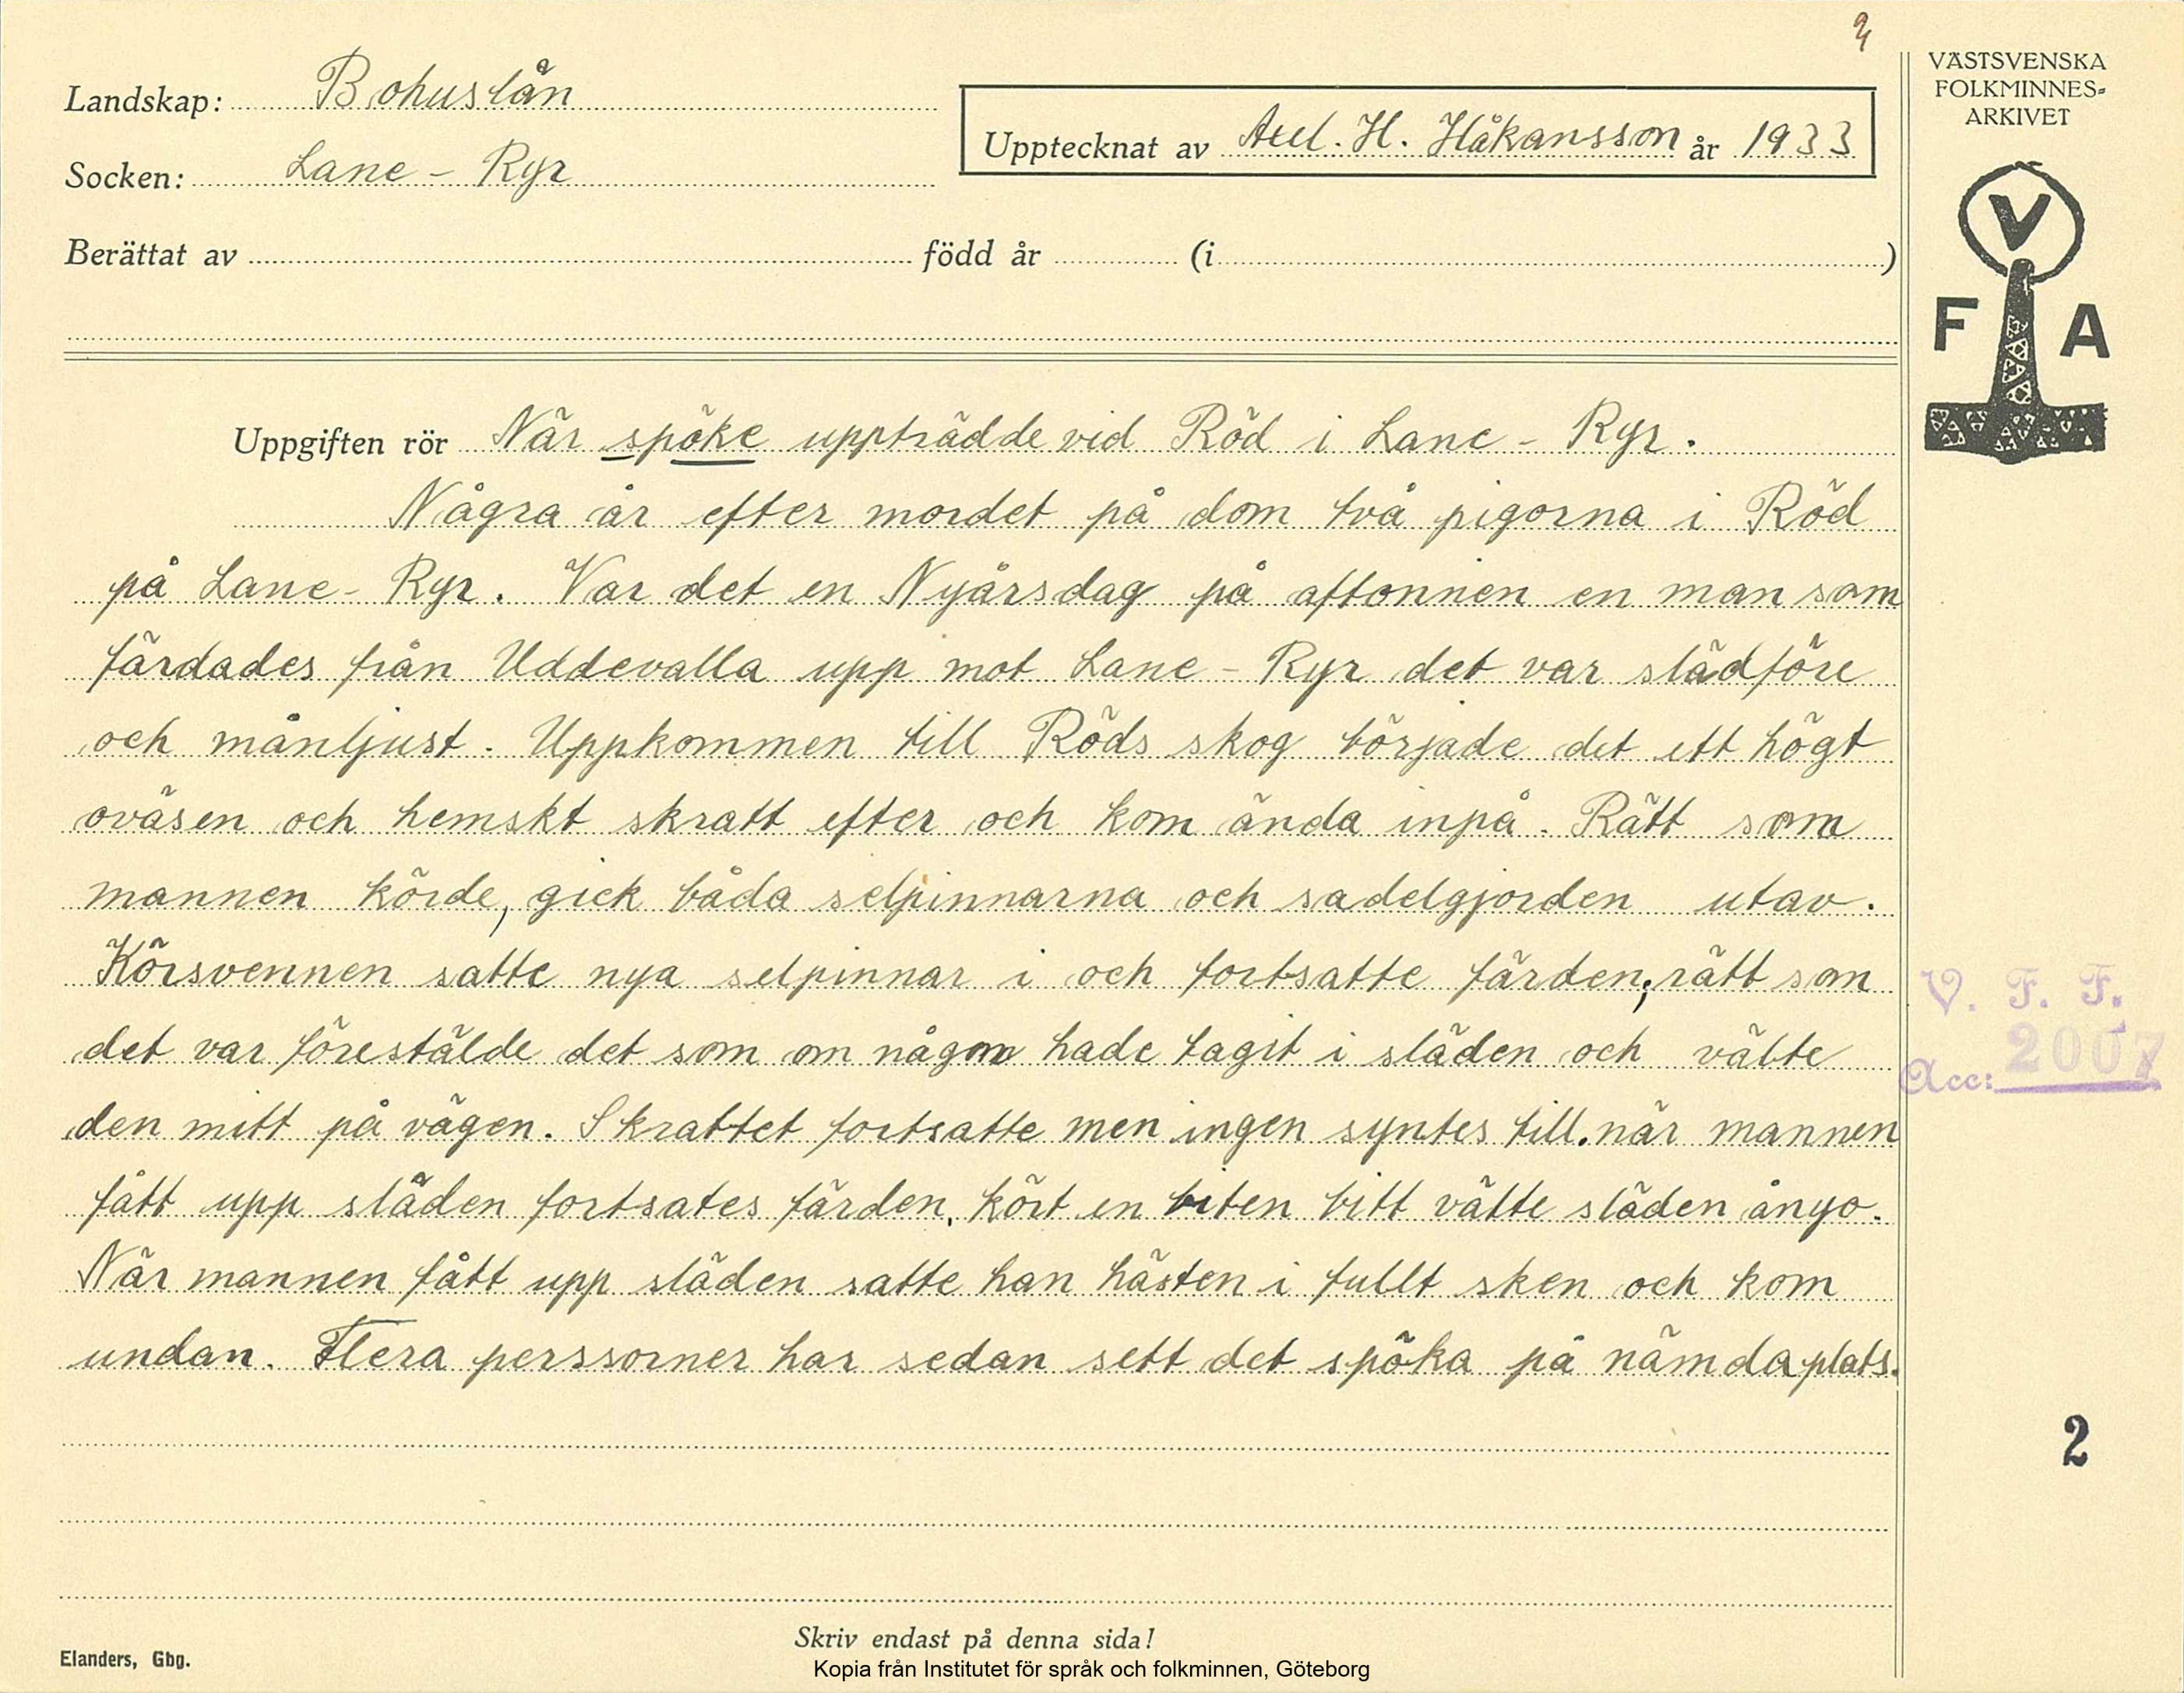 Landskap: Bohuslån
Socken: Lane - Ryr
Upptecknat av Axel. H. Håkansson år 1933
Berättat av född år (i )
VÄSTSVENSKA
FOLKMINNES-
ARKIVET
V
F A
Uppgiften rör När spöke uppträdde vid Röd i Lane - Ryr.
Några år efter mordet på dom två pigorna i Röd
på Lane- Ryr. Var det en Nyårsdag på aftonnen en man som
färdades från Uddevalla upp mot Lane - Ryr det var slädföre
och månljust. Uppkommen till Röds skog började det ett högt
oväsen och hemskt skratt efter och kom ända inpå. Rätt som
mannen körde, gick båda selpinnarna och sadelgjorden utav.
Körsvennen satte nya selpinnar i och fortsatte färden; rätt som
det var förestälde det som om någon hade tagit i släden och välte
den mitt på vägen. Skrattet fortsatte men ingen syntes till. när mannen
fått upp släden fortsates färden, kört en biten bitt välte släden ånyo.
När mannen fått upp släden satte han hästen i fullt sken och kom
undan. Flera perssorner har sedan sett det spöka på nämda plats.
V. F. F.
Acc: 2007
2
Skriv endast på denna sida!
Elanders, Gbg.
Kopia från Institutet för språk och folkminnen, Göteborg